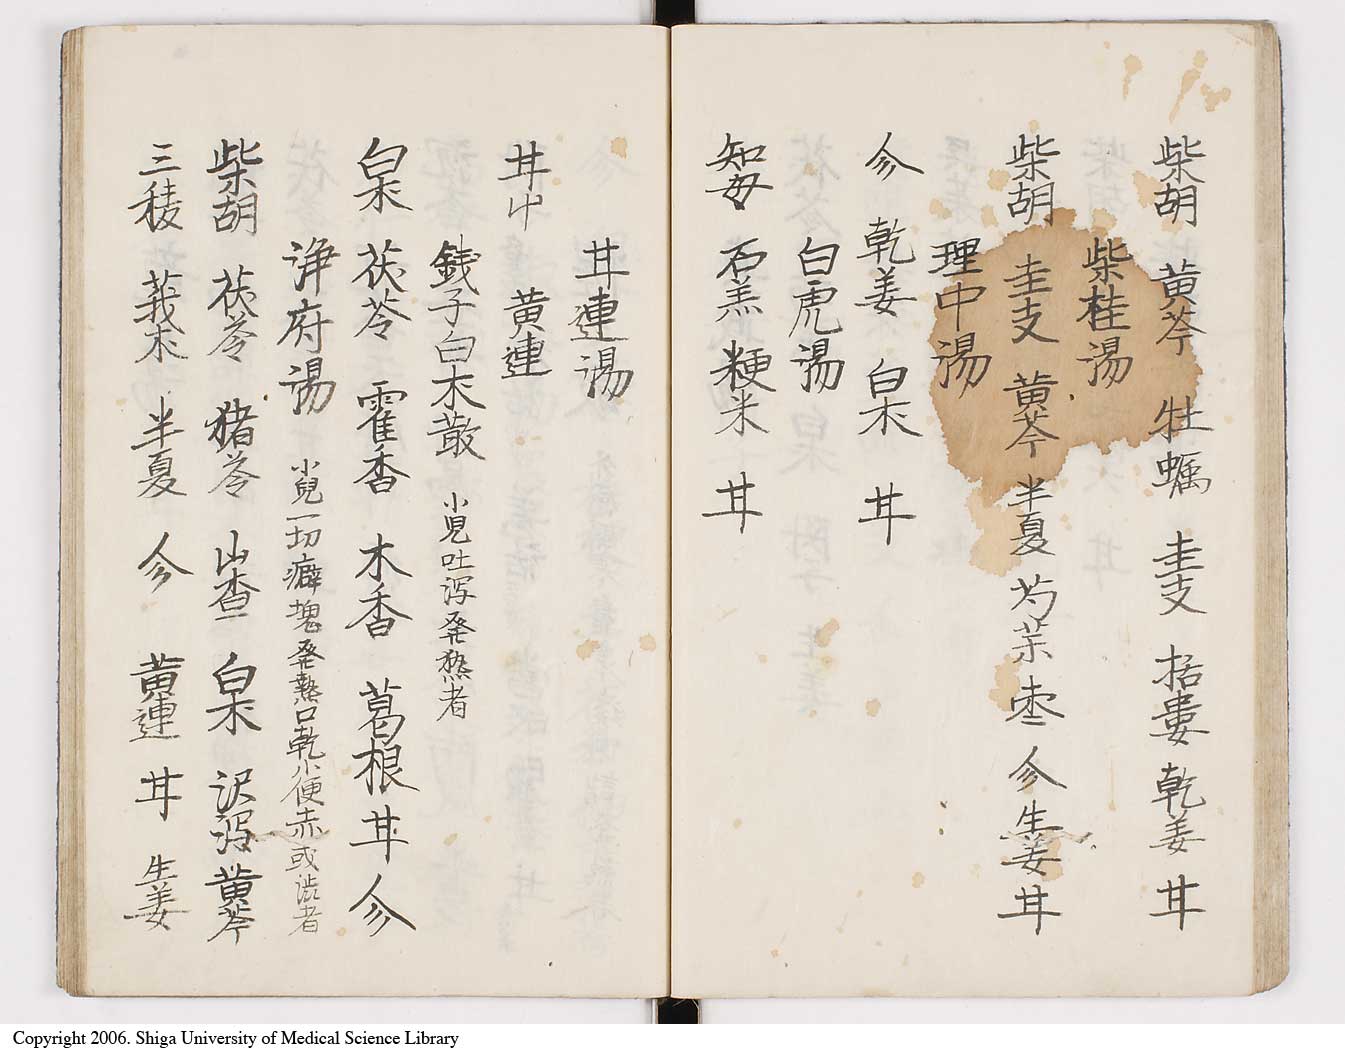 柴胡 黄芩 牡蠣 圭支 括蔞 乾姜 甘
柴桂湯
柴胡 圭支 黄芩 半夏 芍薬 枣 参 生姜 甘
理中湯
参 乾姜 白朮 甘
白虎湯
知母 石羔 粳米 甘
甘連湯
甘中 黄連
銭子白朮散 小児吐瀉発熱者
白朮 茯苓 霍香 木香 葛根 甘 参
浄府湯 小兒一切癖塊発熱口乾小便赤或渋者
柴胡 茯苓 猪苓 山査 白朮 沢瀉 黄芩
三稜 莪朮 半夏 参 黄連 甘 生姜
Copyright 2006. Shiga University of Medical Science Library